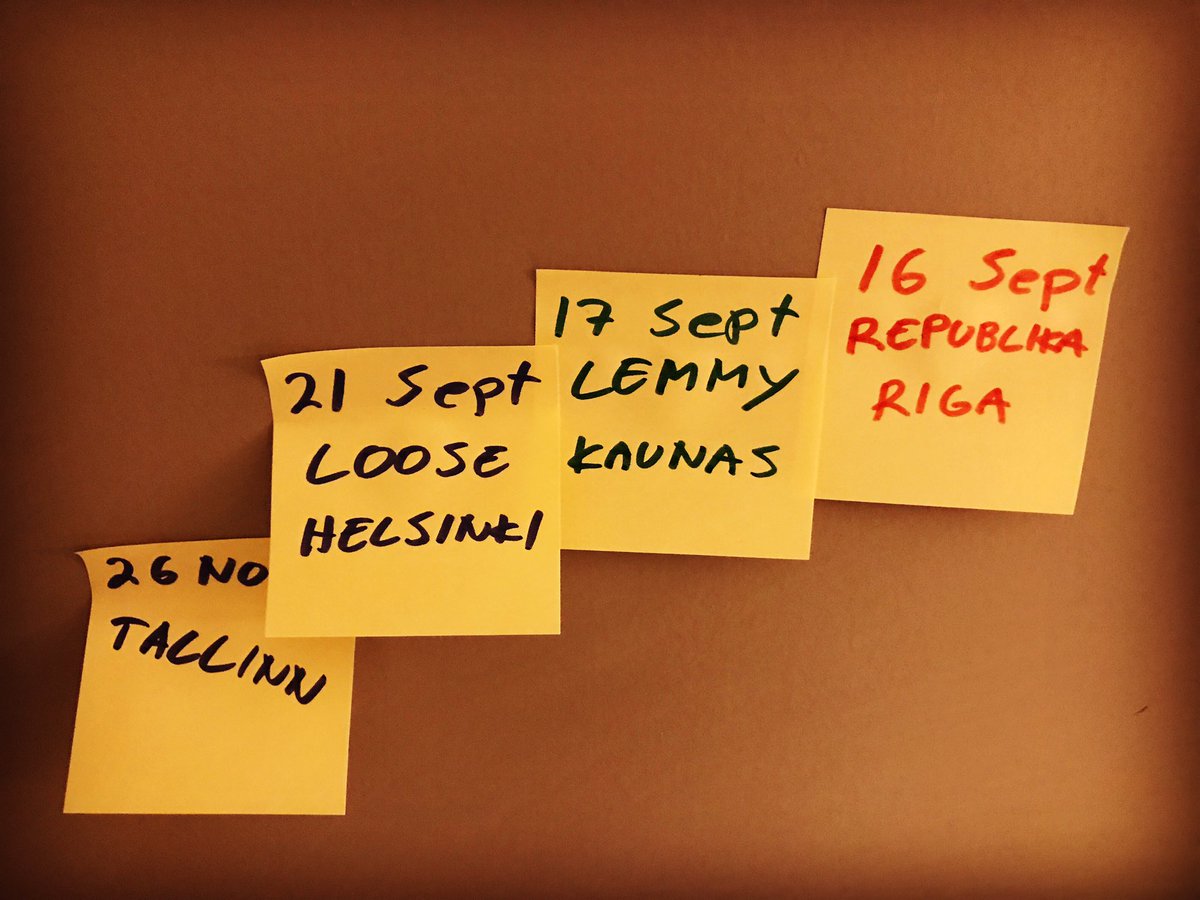 16 Sept
REPUBLIKA
RIGA
17 Sept
LEMMY
KAUNAS
21 Sept
LOOSE
HELSINKI
26 NO
TALLINN